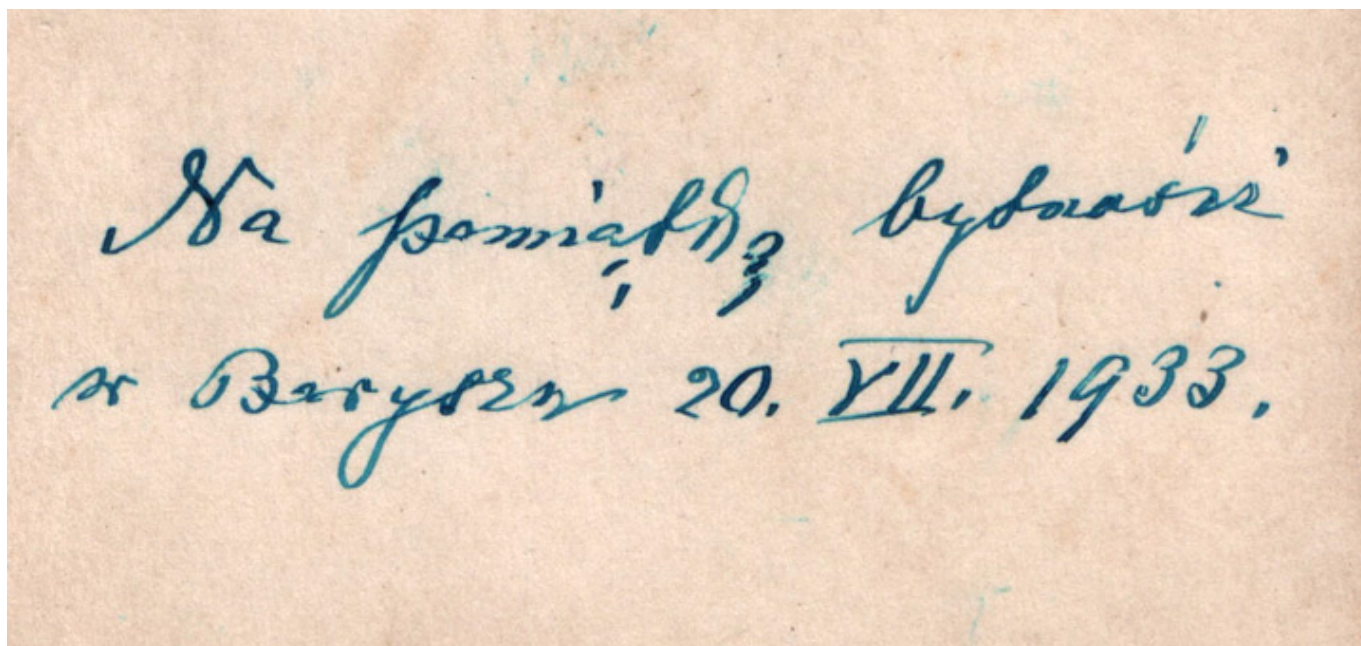 Na pamiątkę bytności
w Baryszu 20. VII. 1933.